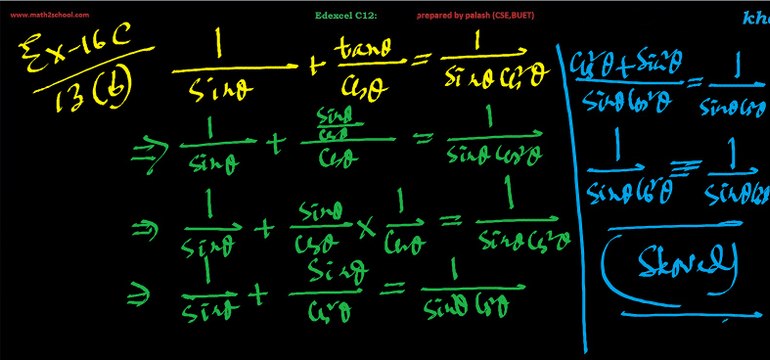 www.math2school.com Edexcel C12: prepared by palash (CSE,BUET) kh
Ex-16C
13(b)
1/sinθ + tanθ/cosθ = 1/(sinθ cos²θ)
⇒ 1/sinθ + (sinθ/cosθ)/cosθ = 1/(sinθ cos²θ)
⇒ 1/sinθ + sinθ/cosθ × 1/cosθ = 1/(sinθ cos²θ)
⇒ 1/sinθ + sinθ/cos²θ = 1/(sinθ cos²θ)
(cos²θ + sin²θ)/(sinθ cos²θ) = 1/(sinθ cos²θ)
1/(sinθ cos²θ) ≡ 1/(sinθ cos²θ)
(Showed)